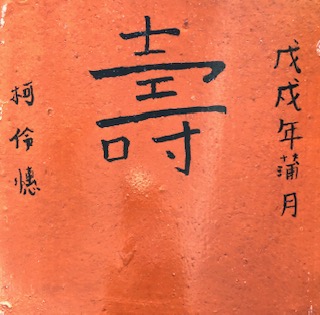 戊戌年蒲月
壽
柯伶憓